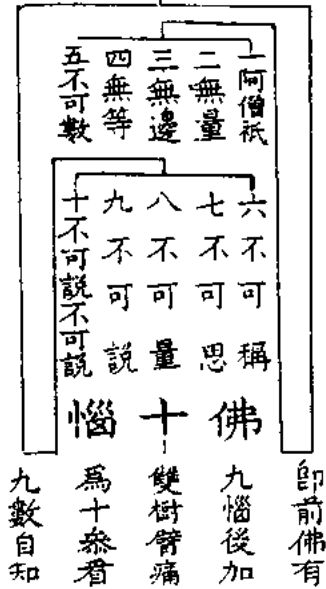 一阿僧祇
二無量
三無邊
四無等
五不可數
六不可稱
七不可思
八不可量
九不可說
十不可說不可說
佛十惱
即前佛有
九惱後加
雙樹臂痛
為十參看
九數自知